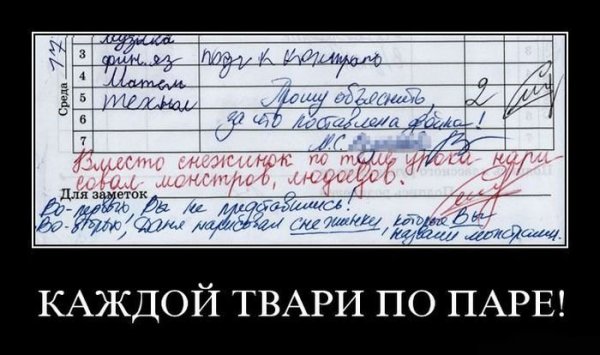 Среда 17
музыка
3 фин. яз подг к контрол
4 Матем
5 технол Прошу объяснить, 2
6 за что поставлена двойка!
7 М.С.
Вместо снежинок по теме урока нари
совал монстров, людоедов.
Для заметок
Во-первых, Вы не представились!
Во-вторых, Даня нарисовал снежинки, которые Вы
назвали монстрами.
КАЖДОЙ ТВАРИ ПО ПАРЕ!